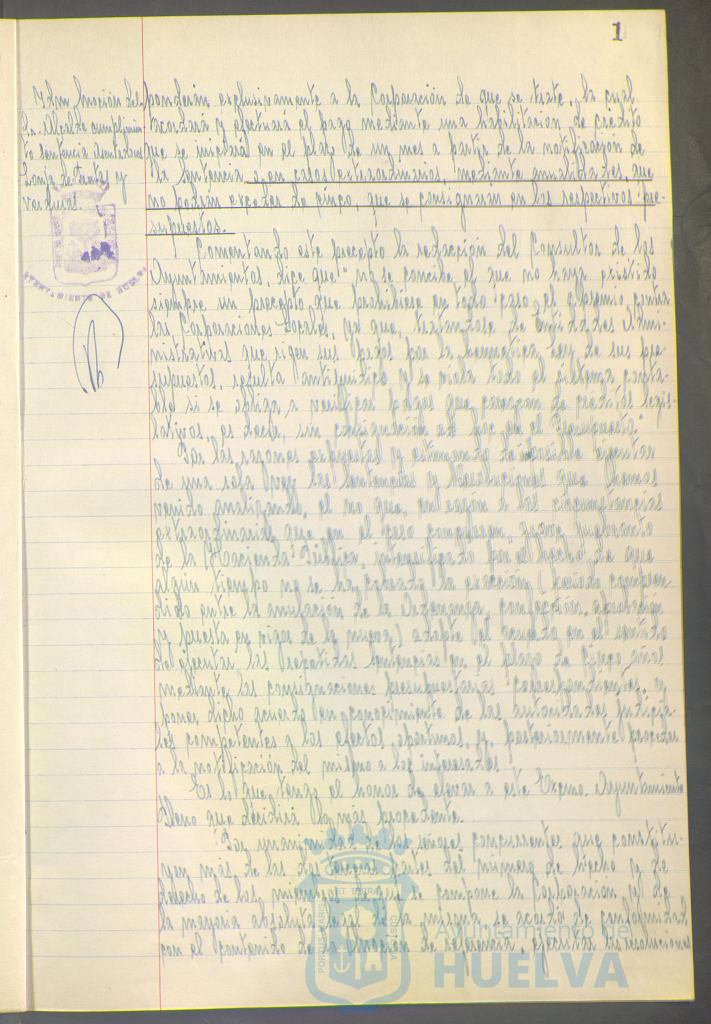 1
Idem Moción del
Sr. Alcalde cumplimien-
to sentencia
Lonja de Frutas y
verduras.
AYUNTAMIENTO DE HUELVA
ponderán exclusivamente a la Corporación de que se trate, la cual
acordará y efectuará el pago mediante una habilitación de crédito
que se iniciará en el plazo de un mes a partir de la notificación de
la sentencia o en casos extraordinarios, mediante anualidades, que
no podrán exceder de cinco, que se consignarán en los respectivos pre-
supuestos.
Comentando este precepto la redacción del Consultor de los
Ayuntamientos, dice que "no se concibe el que no haya existido
siempre un precepto que prohibiese en todo caso el apremio contra
las Corporaciones Locales, ya que, tratándose de Entidades Admi-
nistrativas que rigen sus gastos por la normativa ley de sus pre-
supuestos, resulta antijurídico y se viola todo el sistema conta-
ble si se obliga a verificar pagos que carecen de créditos legis-
lativos, es decir, sin consignación ad hoc en el Presupuesto."
Por las razones expuestas y estimando imposible ejecutar
de una sola vez las sentencias y resoluciones que hemos
venido analizando, el no que, en razón a las circunstancias
extraordinarias que en el caso concurren, grave quebranto
de la Hacienda Pública, intensificado por el hecho de que
algún tiempo no se ha cobrado la exacción (período compren-
dido entre la anulación de la Ordenanza, confección, aprobación
y puesta en vigor de la nueva) adopte el acuerdo en el sentido
de ejecutar las repetidas sentencias en el plazo de cinco años
mediante las consignaciones presupuestarias correspondientes, y
poner dicho acuerdo en conocimiento de las autoridades judicia-
les competentes a los efectos oportunos, y posteriormente proceder
a la notificación del mismo a los interesados.
Es lo que tengo el honor de elevar a este Excmo. Ayuntamiento
Pleno que decidirá lo más procedente.
Por unanimidad de los señores concurrentes que constitu-
yen más de las dos terceras partes del número de hecho y de
derecho de los miembros de que se compone la Corporación y de
la mayoría absoluta legal de la misma, se acordó de conformidad
con el contenido de la Moción de referencia, ejecutar las resoluciones
Ayuntamiento de
HUELVA